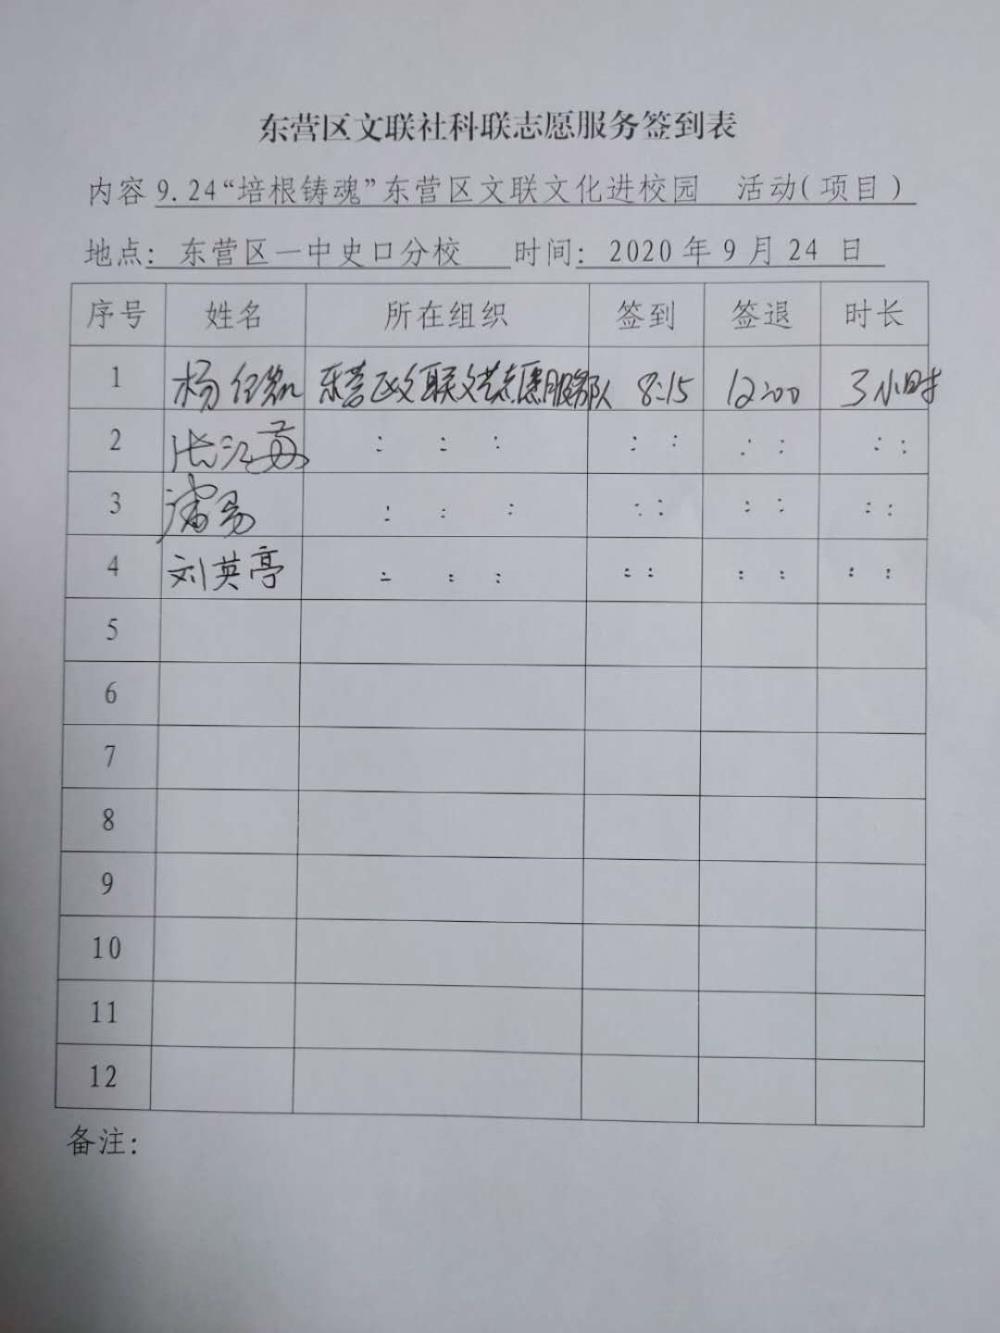 东营区文联社科联志愿服务签到表
内容 9.24“培根铸魂”东营区文联文化进校园 活动(项目)
地点: 东营区一中史口分校 时间: 2020 年 9 月 24 日
序号 姓名 所在组织 签到 签退 时长
1 杨 东营区文联文艺志愿服务队 8:15 12:00 3小时
2 张江 : : : : : : : : :
3 : : : : : : : : :
4 刘英亭 : : : : : : : : :
5
6
7
8
9
10
11
12
备注: